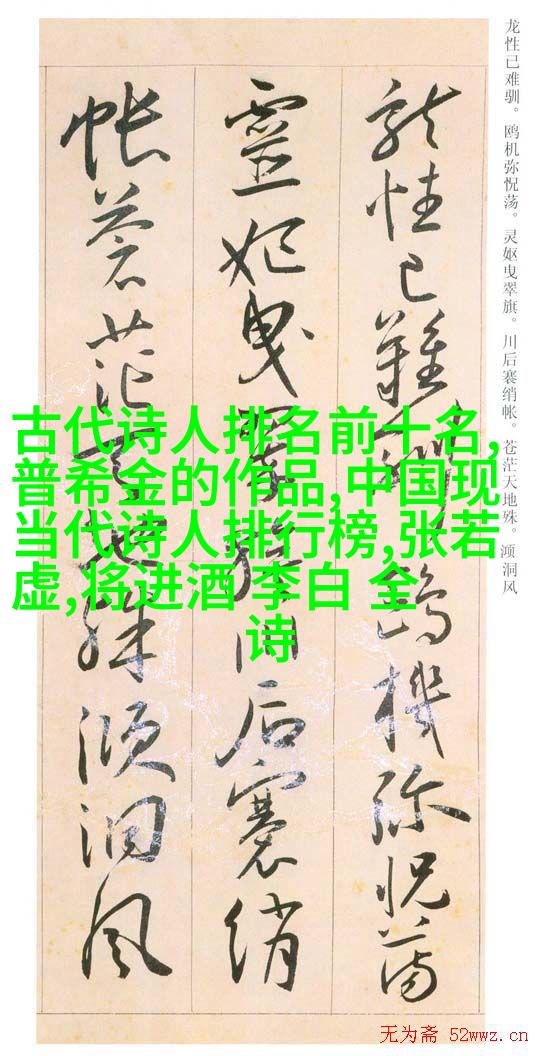 龙性已难驯。鸥机弥怳荡。灵妪曳翠旗。川后褰绡帐。苍茫天地殊。澒洞风
龙性已难驯鸥机弥怳荡
灵妃曳翠旗川后褰绡
帐苍茫天地殊澒洞风
古代诗人排名前十名,
普希金的作品,中国现
当代诗人排行榜,张若
虚,将进酒 李白 全
诗
无为斋 52wwz.cn